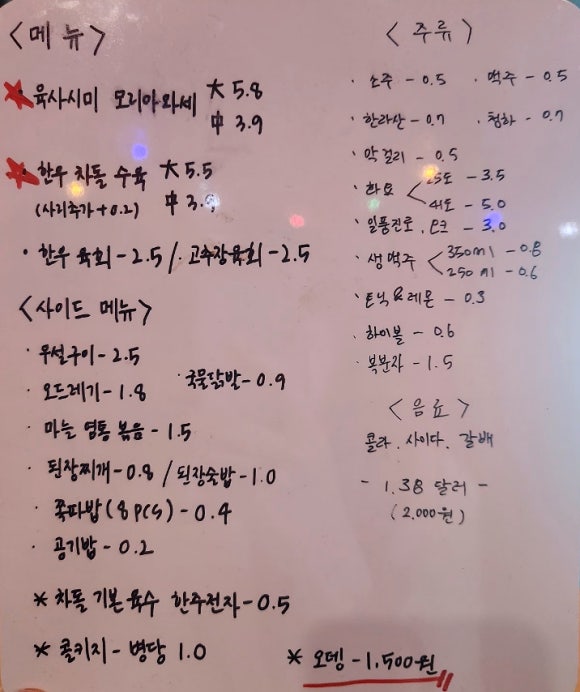 <메뉴>
육사시미 모리아와세 大 5.8
中 3.9
한우 차돌 수육 大 5.5
(사리추가+0.2) 中 3.9
· 한우 육회 - 2.5 / · 고추장육회 - 2.5
<사이드 메뉴>
· 우설구이 - 2.5
· 오드레기 - 1.8 · 국물닭발 - 0.9
· 마늘 염통 볶음 - 1.5
· 된장찌개 - 0.8 / 된장술밥 - 1.0
· 쪽파밥 (8pcs) - 0.4
· 공기밥 - 0.2
* 차돌 기본 육수 한주전자 - 0.5
* 콜키지 - 병당 1.0
* 오뎅 - 1,500원
<주류>
· 소주 - 0.5 · 맥주 - 0.5
· 한라산 - 0.7 · 청하 - 0.7
· 막걸리 - 0.5
· 화요 < 25도 - 3.5
41도 - 5.0
· 일품진로, 오크 - 3.0
· 생맥주 < 350ml - 0.8
250ml - 0.6
· 토닉&레몬 - 0.3
· 하이볼 - 0.6
· 복분자 - 1.5
<음료>
콜라. 사이다. 갈배
- 1.38 달러 -
(2,000원)